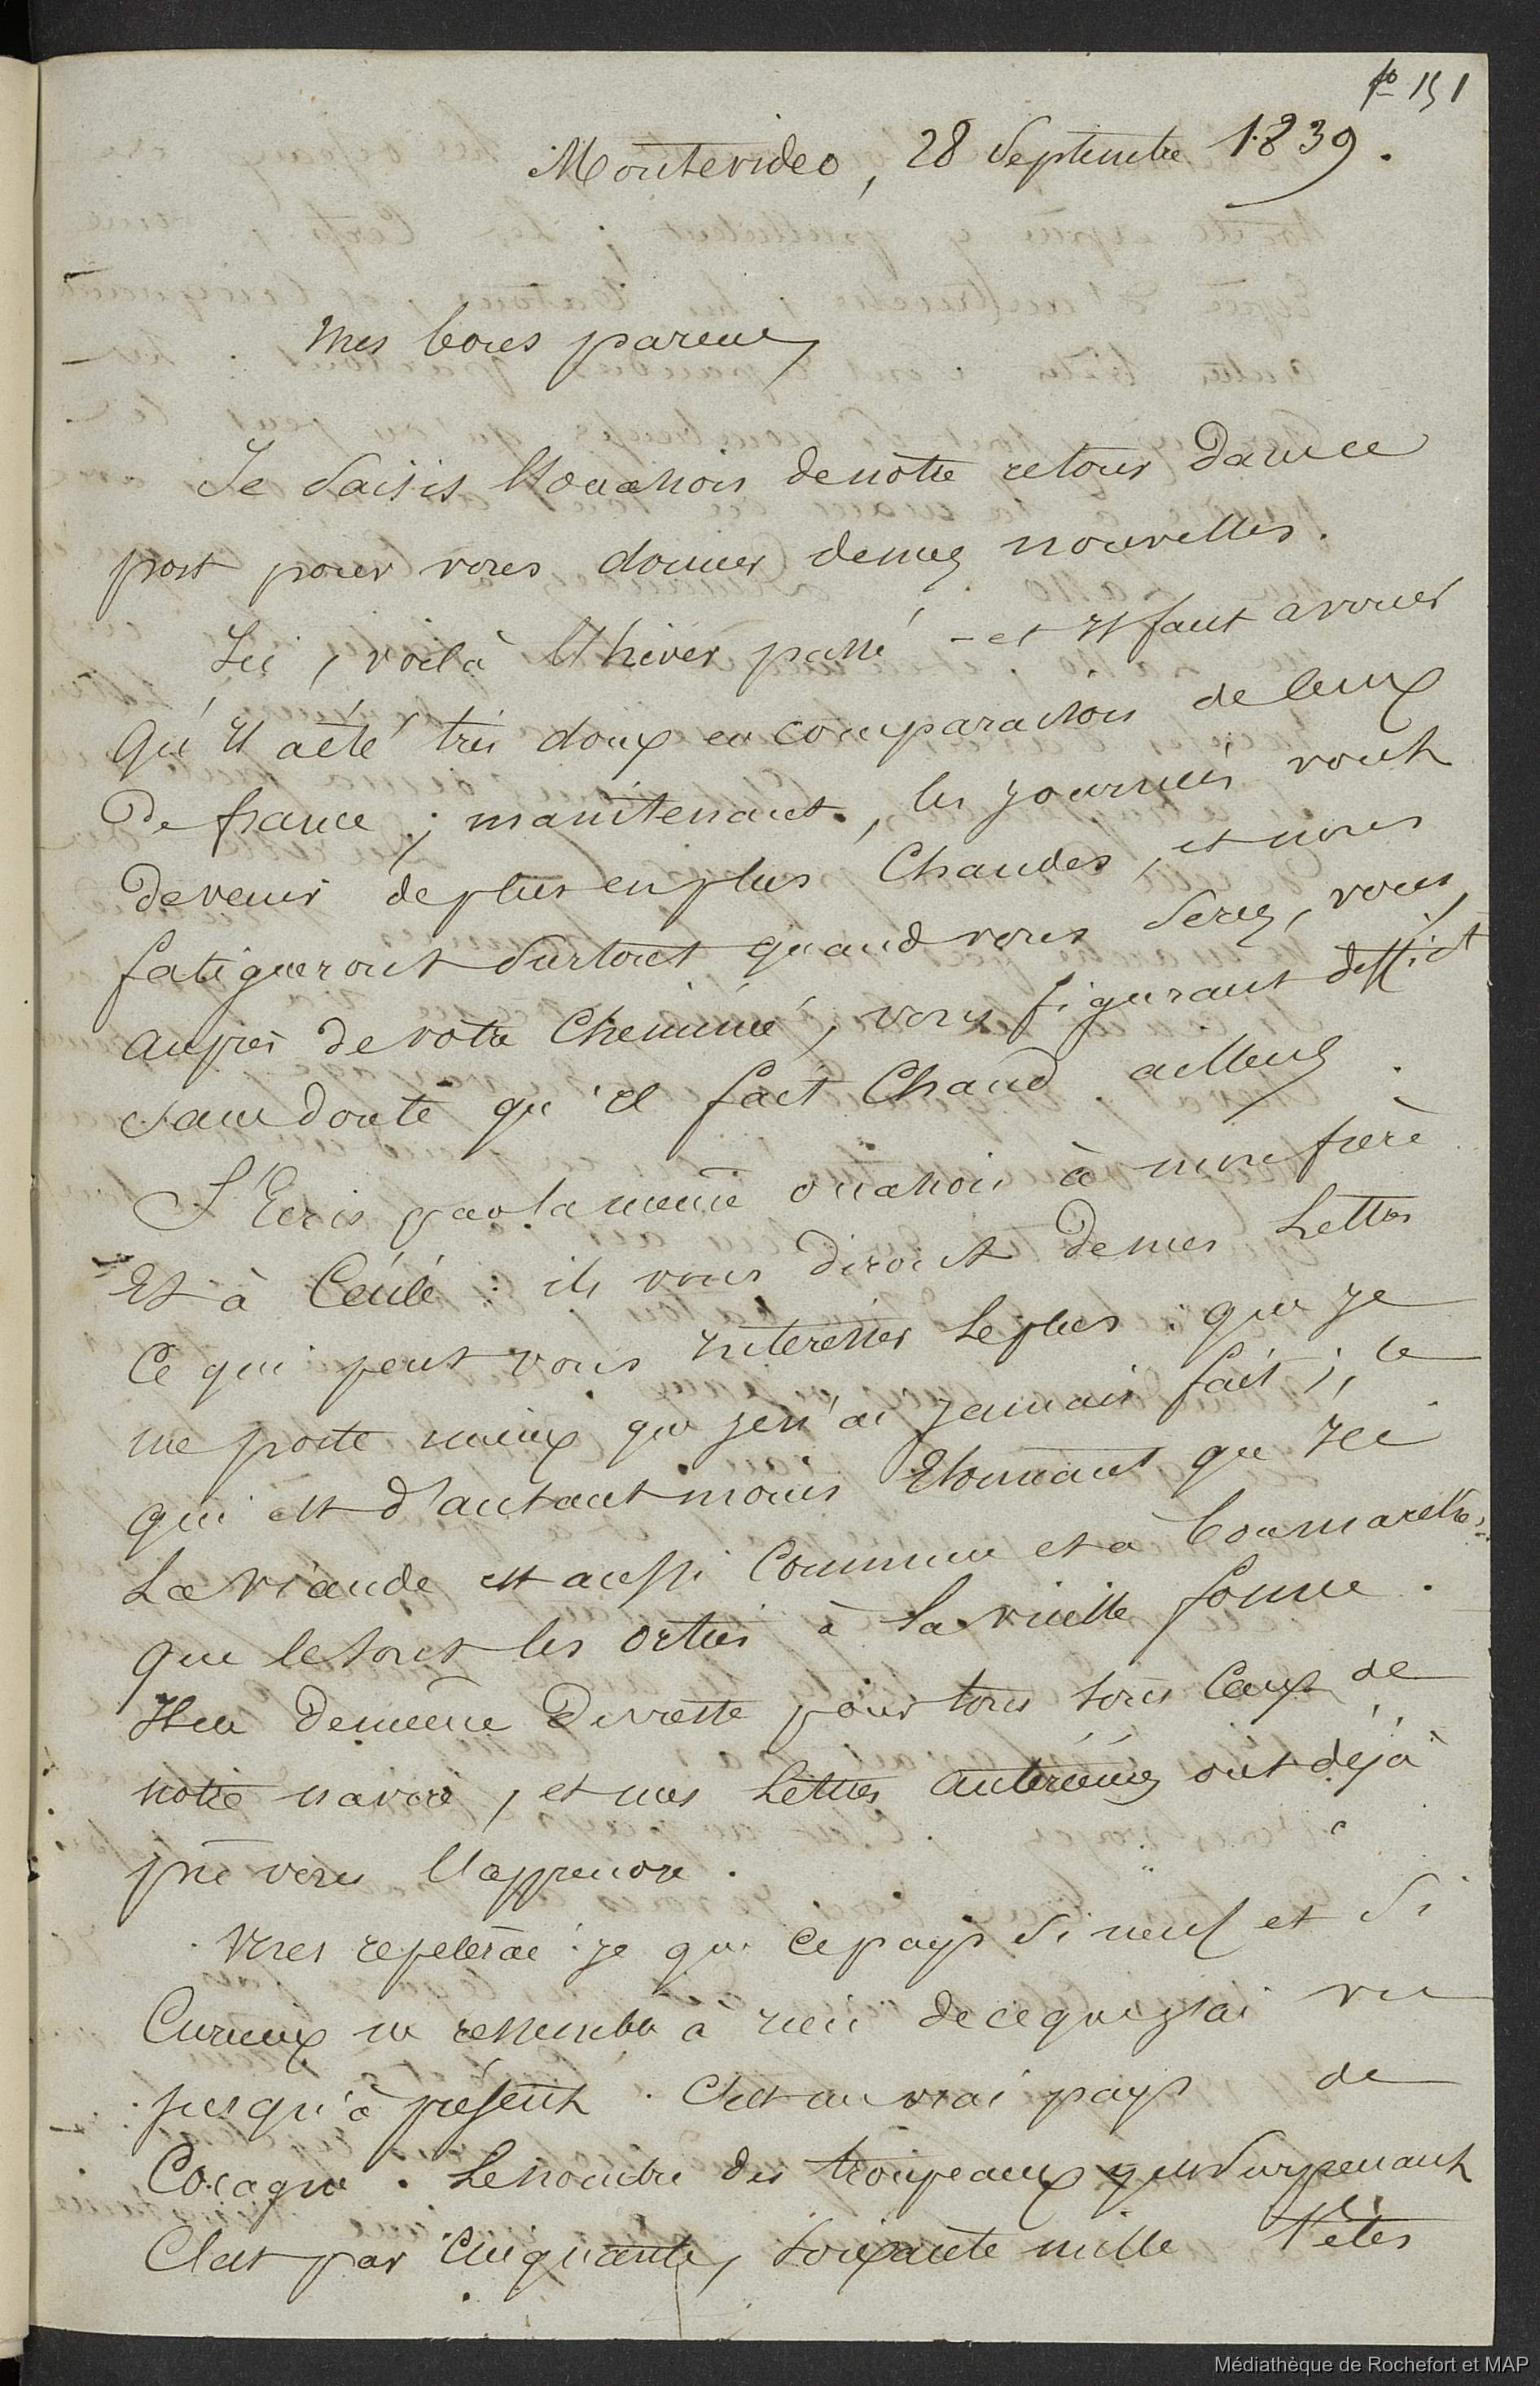 fo 151
Montevideo, 28 Septembre 1839.
Mes bons parens,
Je Saisis l'occasion de notre retour dans ce
port pour vous donner de mes nouvelles.
Ici, voilà l'hiver passé - et Il faut avouer
qu'Il a été très doux en comparaison de ceux
De france; maintenant, les journées vont
devenir de plus en plus Chaudes, et nous
fatigueront Surtout quand vous Serez, vous,
auprès de votre Cheminée, vous figurant diffict
sans doute qu'il fait Chaud ailleurs.
J'Ecris par la même occasion à mon frère
Et à Cécile: ils vous diront de mes Lettres
Ce qui peut vous Interesser le plus: que je
me porte mieux que je n'ai jamais fait; ce
qui est d'autant moins Etonnant que Ici
La viande est aussi Commune et à bon marché
que le sont les orties à la vieille forme.
Il en de même Du reste pour tous ceux de
notre navire, et mes Lettres antérieures ont déjà
pu vous l'apprendre.
Vous repeterai-je que ce pays Si neuf et Si
Curieux ne ressemble à rien de ce que j'ai vu
jusqu'à présent. C'est un vrai pays de
Cocagne. Le nombre des troupeaux y est Surprenant
C'est par Cinquante, Soixante mille têtes
Médiathèque de Rochefort et MAP